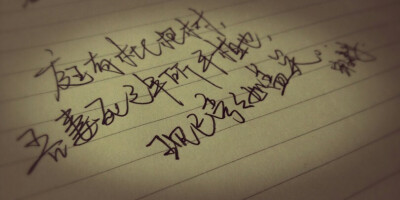 庭有枇杷树，
吾妻死之年所手植也，
现已亭亭如盖矣。